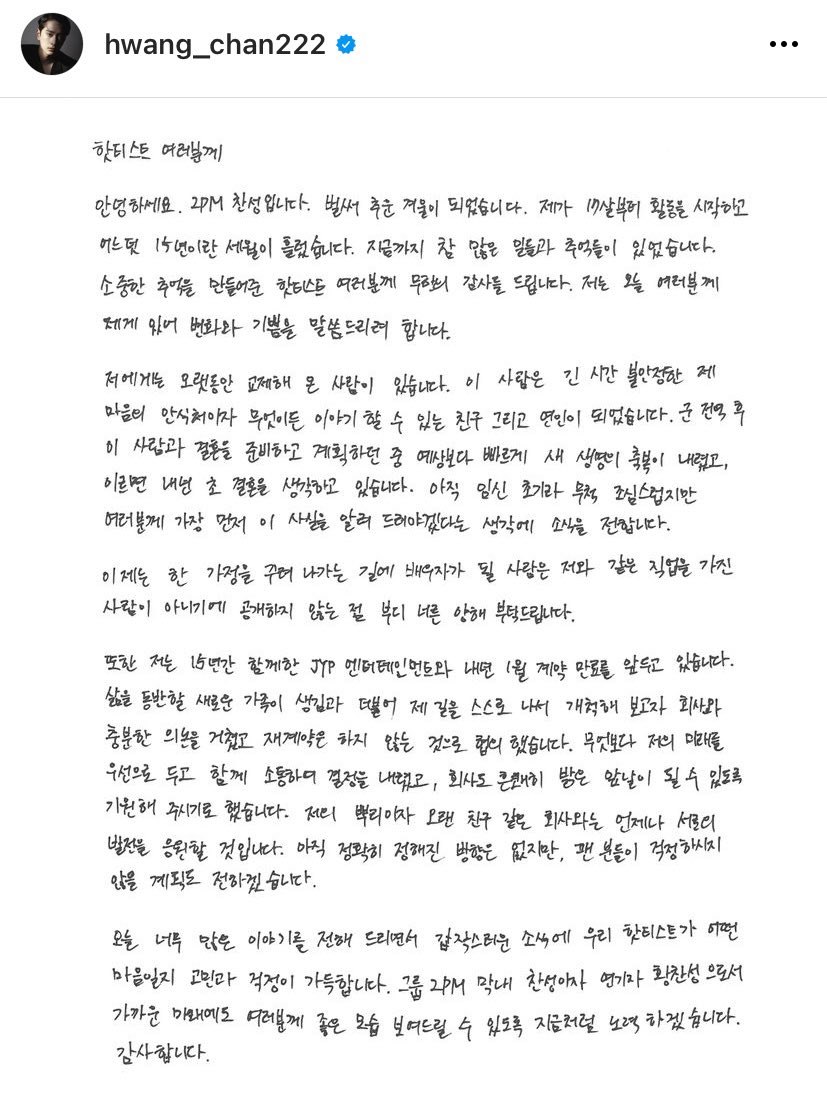 hwang_chan222
핫티스트 여러분께
안녕하세요. 2PM 찬성입니다. 벌써 추운 겨울이 되었습니다. 제가 17살부터 활동을 시작하고
어느덧 15년이란 세월이 흘렀습니다. 지금까지 참 많은 일들과 추억들이 있었습니다.
소중한 추억을 만들어준 핫티스트 여러분께 무한의 감사를 드립니다. 저는 오늘 여러분께
제게 있어 변화와 기쁨을 말씀드리려 합니다.
저에게는 오랫동안 교제해 온 사람이 있습니다. 이 사람은 긴 시간 불안정한 제
마음의 안식처이자 무엇이든 이야기 할 수 있는 친구 그리고 연인이 되었습니다. 군 전역 후
이 사람과 결혼을 준비하고 계획하던 중 예상보다 빠르게 새 생명의 축복이 내렸고,
이르면 내년 초 결혼을 생각하고 있습니다. 아직 임신 초기라 무척 조심스럽지만
여러분께 가장 먼저 이 사실을 알려 드려야겠다는 생각에 소식을 전합니다.
이제는 한 가정을 꾸려 나가는 길에 배우자가 될 사람은 저와 같은 직업을 가진
사람이 아니기에 공개하지 않는 점 부디 너른 양해 부탁드립니다.
또한 저는 15년간 함께한 JYP 엔터테인먼트와 내년 1월 계약 만료를 앞두고 있습니다.
삶을 동반할 새로운 가족이 생김과 더불어 제 길을 스스로 나서 개척해 보고자 회사와
충분한 의논을 거쳤고 재계약은 하지 않는 것으로 협의 했습니다. 무엇보다 저의 미래를
우선으로 두고 함께 소통하며 결정을 내렸고, 회사도 흔쾌히 밝은 앞날이 될 수 있도록
기원해 주시기로 했습니다. 저의 뿌리이자 오랜 친구 같은 회사와는 언제나 서로의
발전을 응원할 것입니다. 아직 정확히 정해진 방향은 없지만, 팬 분들이 걱정하시지
않을 계획도 전하겠습니다.
오늘 너무 많은 이야기를 전해 드리면서 갑작스러운 소식에 우리 핫티스트가 어떤
마음일지 고민과 걱정이 가득합니다. 그룹 2PM 막내 찬성이자 연기자 황찬성으로서
가까운 미래에도 여러분께 좋은 모습 보여드릴 수 있도록 지금처럼 노력 하겠습니다.
감사합니다.